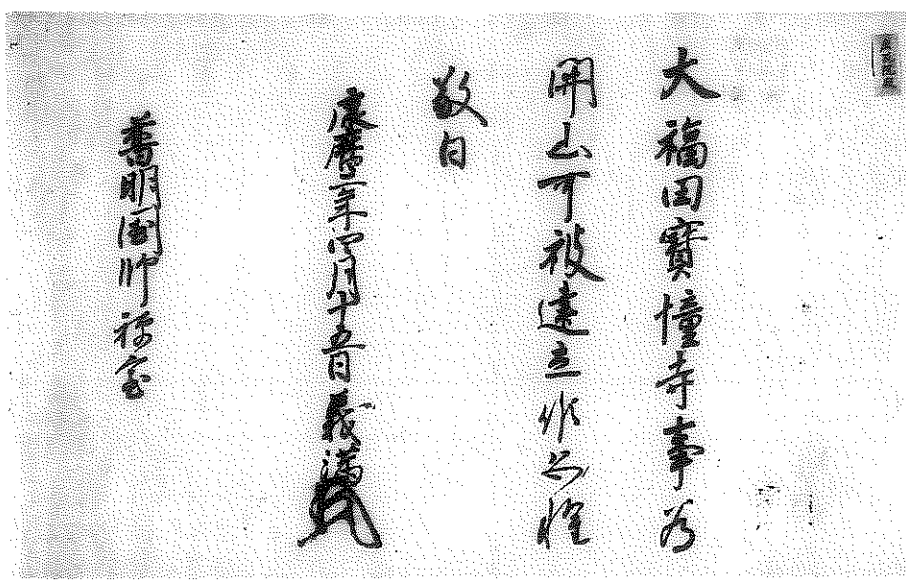 大福田寶幢寺事為
開山可被建立作之惶
敬白
康暦二年四月十五日義満
普明國師禅室